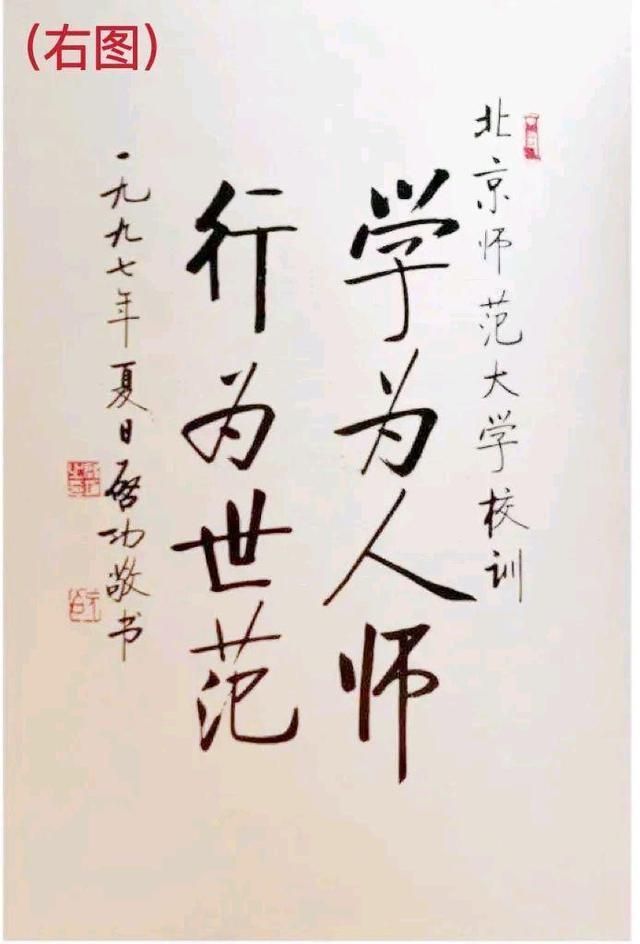 (右图)
北京师范大学校训
学为人师
行为世范
一九九七年夏日启功敬书